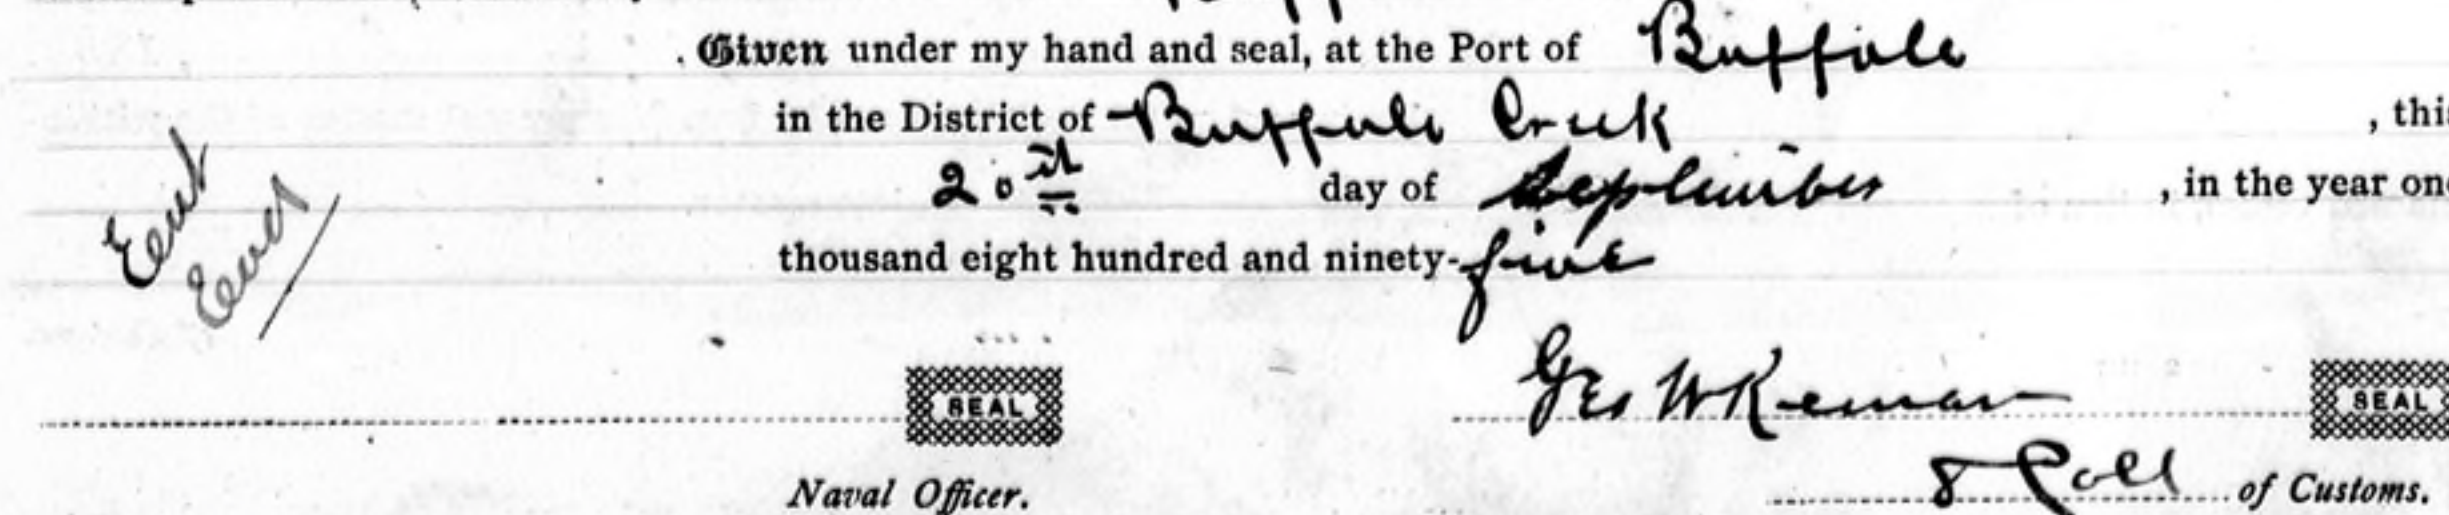 Given under my hand and seal, at the Port of Buffalo
in the District of Buffalo Creek, this
20th day of September, in the year one
thousand eight hundred and ninety-five
SEAL Geo W SEAL
Naval Officer. Coll of Customs.